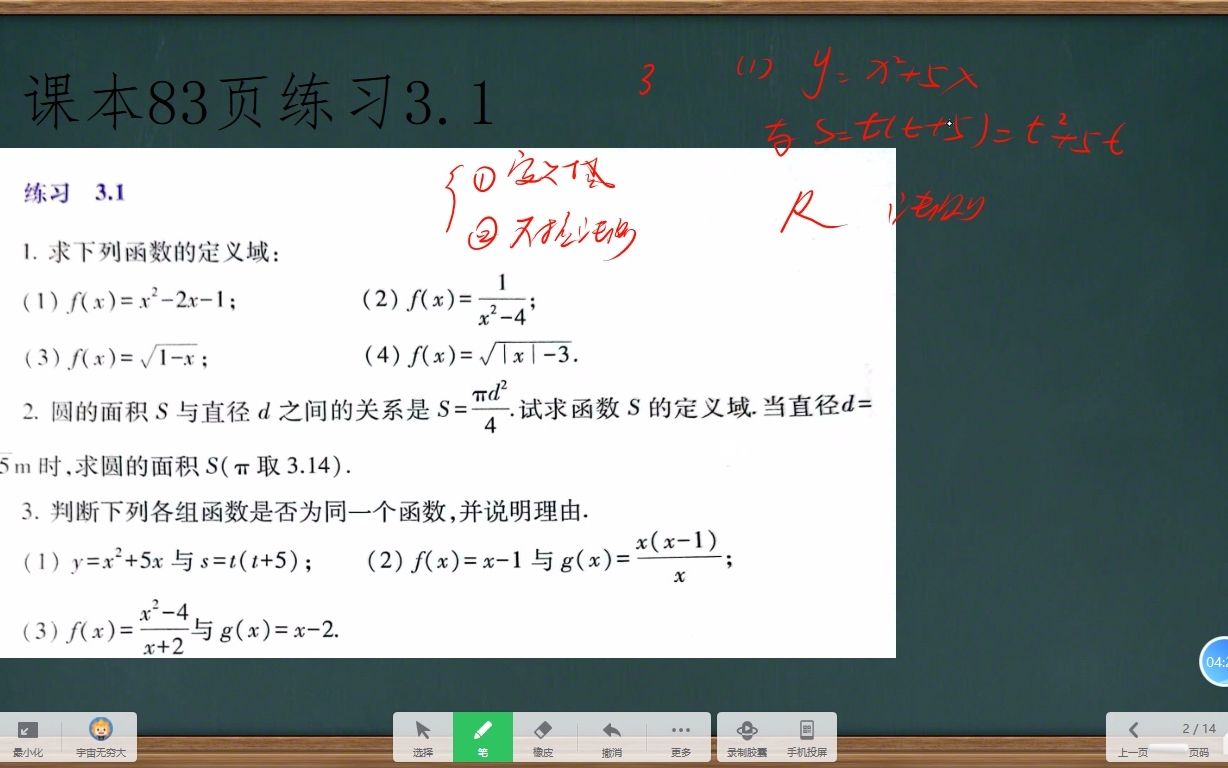 课本83页练习3.1
3 (1) y=x²+5x
与 s=t(t+5)=t²+5t
① 定义域
② 对应法则
R 法则
练习 3.1
1. 求下列函数的定义域:
(1) f(x)=x²-2x-1; (2) f(x)=1/(x²-4);
(3) f(x)=√(1-x); (4) f(x)=√(|x|-3).
2. 圆的面积 S 与直径 d 之间的关系是 S=πd²/4.试求函数 S 的定义域.当直径d=
5m 时,求圆的面积 S(π 取 3.14).
3. 判断下列各组函数是否为同一个函数,并说明理由.
(1) y=x²+5x 与 s=t(t+5); (2) f(x)=x-1 与 g(x)=x(x-1)/x;
(3) f(x)=(x²-4)/(x+2)与 g(x)=x-2.
04:2
最小化 宇宙无穷大 选择 笔 橡皮 撤消 更多 录制胶囊 手机投屏 上一页 2 / 14 页码